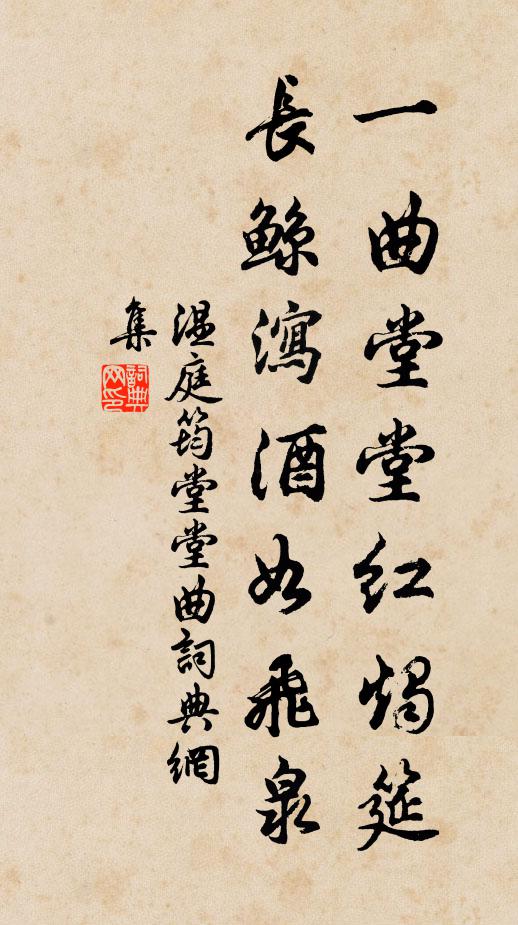 一曲堂堂紅燭筵
長鯨瀉酒如飛泉
溫庭筠堂堂曲詞典網
集
詞典
网印